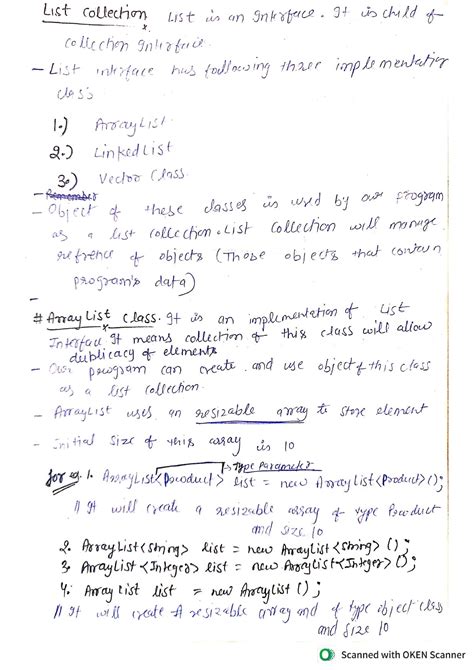 List Collection List is an Interface. It is child of
collection Interface.
- List interface has following three implementation
class
1.) ArrayList
2.) LinkedList
3.) Vector Class
- Remember
- Object of these classes is used by our program
as a list collection. List Collection will manage
reference of objects (Those objects that contain
program's data)
-
# ArrayList Class. It is an implementation of List
Interface It means collection of this class will allow
dublicacy of elements
- Our program can create and use object of this class
as a list collection.
- ArrayList uses an resizable array to store element
- Initial size of this array is 10
→ Type Parameter
for eg. 1. ArrayList<Product> list = new ArrayList<Product>();
// It will create a resizable array of type Product
and size 10
2. ArrayList<String> list = new ArrayList<String>();
3. ArrayList<Integer> list = new ArrayList<Integer>();
4. ArrayList list = new ArrayList();
// It will create A resizable array and of type object class
and size 10
Scanned with OKEN Scanner